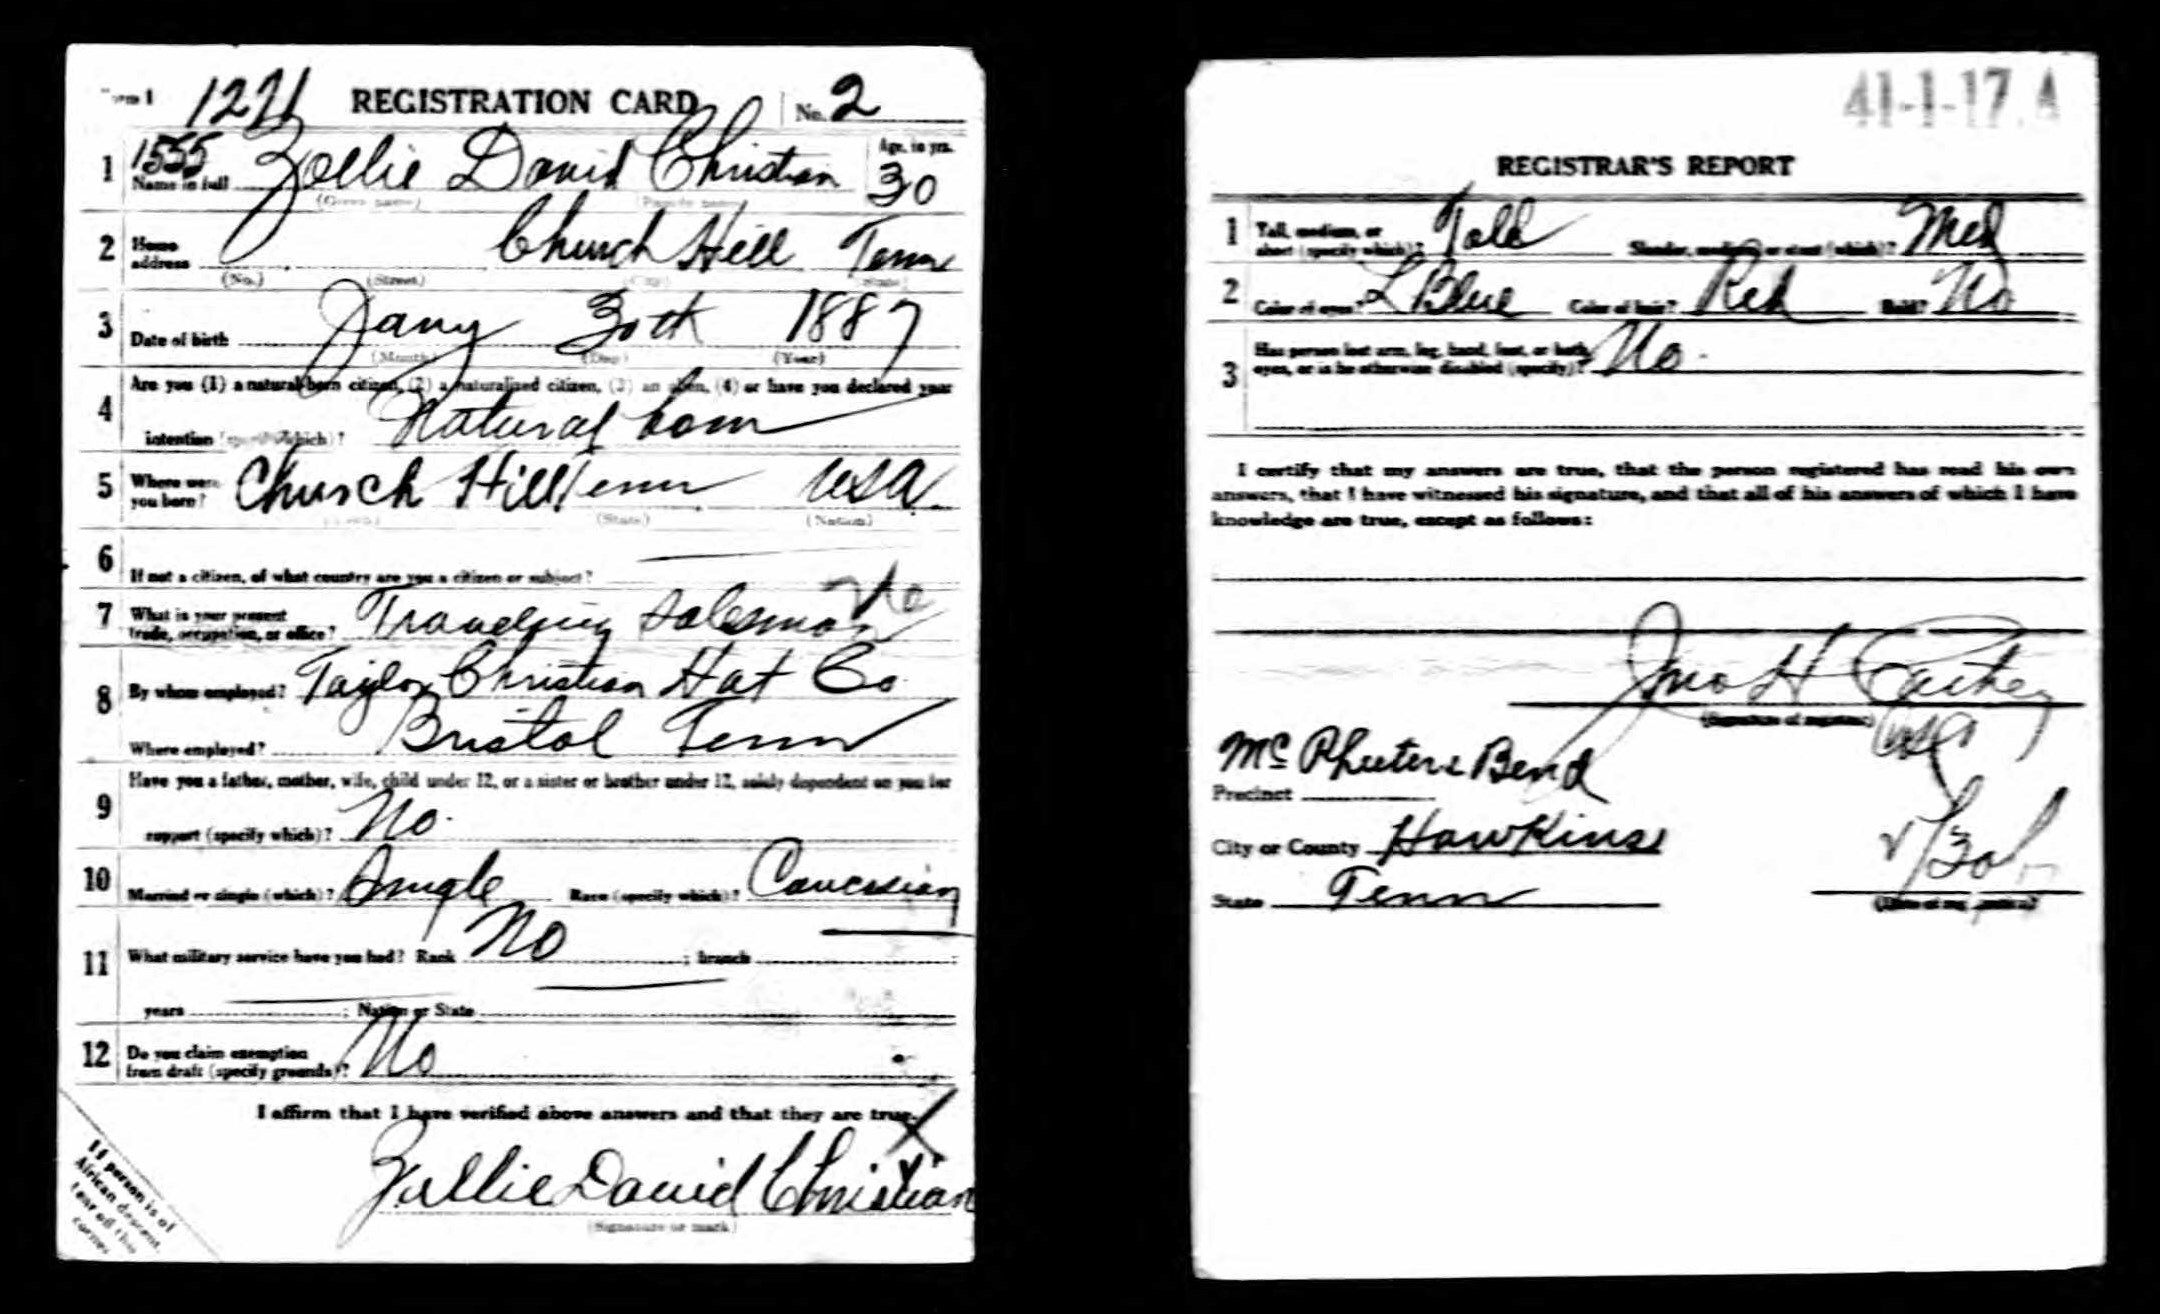 1221 REGISTRATION CARD No. 2
1555
1 Name in full Zollie David Christian Age, in yrs. 30
(Given name) (Family name)
2 Home address Church Hill Tenn
(No.) (Street) (City) (State)
3 Date of birth Jany 30th 1887
(Month) (Day) (Year)
4 Are you (1) a natural born citizen, (2) a naturalized citizen, (3) an alien, (4) or have you declared your
intention (specify which)? Natural born
5 Where were you born? Church Hill Tenn USA
(Town) (State) (Nation)
6 If not a citizen, of what country are you a citizen or subject?
No
7 What is your present trade, occupation, or office? Traveling Salesman
8 By whom employed? Taylor Christian Hat Co
Where employed? Bristol Tenn
9 Have you a father, mother, wife, child under 12, or a sister or brother under 12, solely dependent on you for
support (specify which)? No.
10 Married or single (which)? Single Race (specify which)? Caucasian
11 What military service have you had? Rank No ; branch ;
years ; Nation or State
12 Do you claim exemption from draft (specify grounds)? No
I affirm that I have verified above answers and that they are true.
X
Zollie David Christian
(Signature or mark)
If person is of
African descent,
tear off this
corner.
41-1-17. A
REGISTRAR'S REPORT
1 Tall, medium, or short (specify which)? Tall Slender, medium, or stout (which)? Med
2 Color of eyes? L Blue Color of hair? Red Bald? No
3 Has person lost arm, leg, hand, foot, or both eyes, or is he otherwise disabled (specify)? No.
I certify that my answers are true, that the person registered has read his own
answers, that I have witnessed his signature, and that all of his answers of which I have
knowledge are true, except as follows:
Jno H
(Signature of registrar)
Precinct McPheeters Bend
City or County Hawkins
State Tenn
(Date of registration)